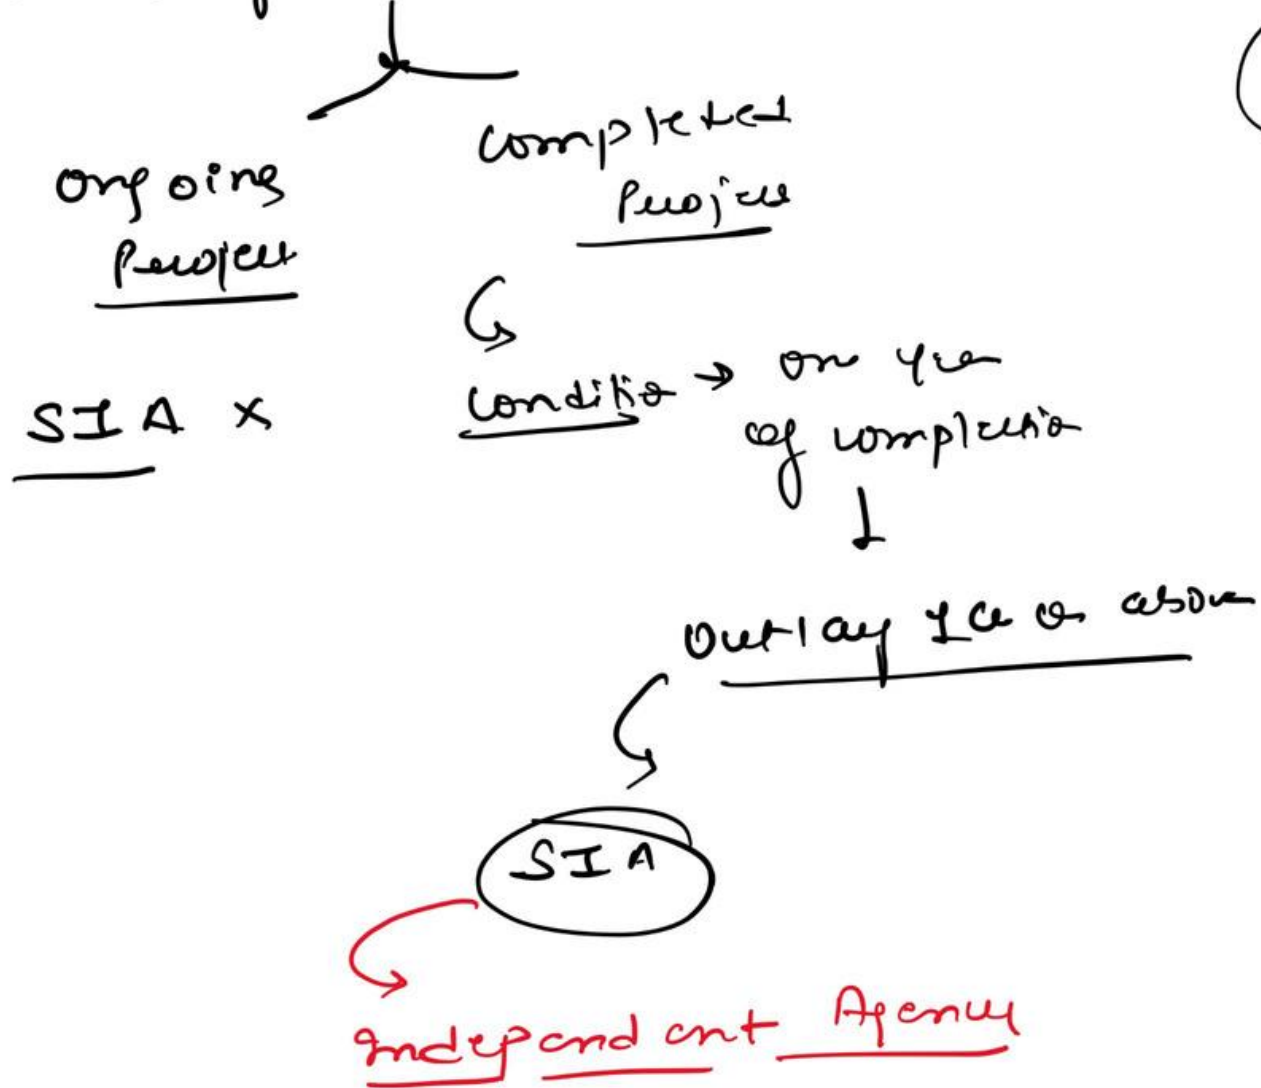 ongoing
Project
SIA x
completed
Project
condition → one year
of completion
outlay 1 Cr or above
SIA
Independant Agency